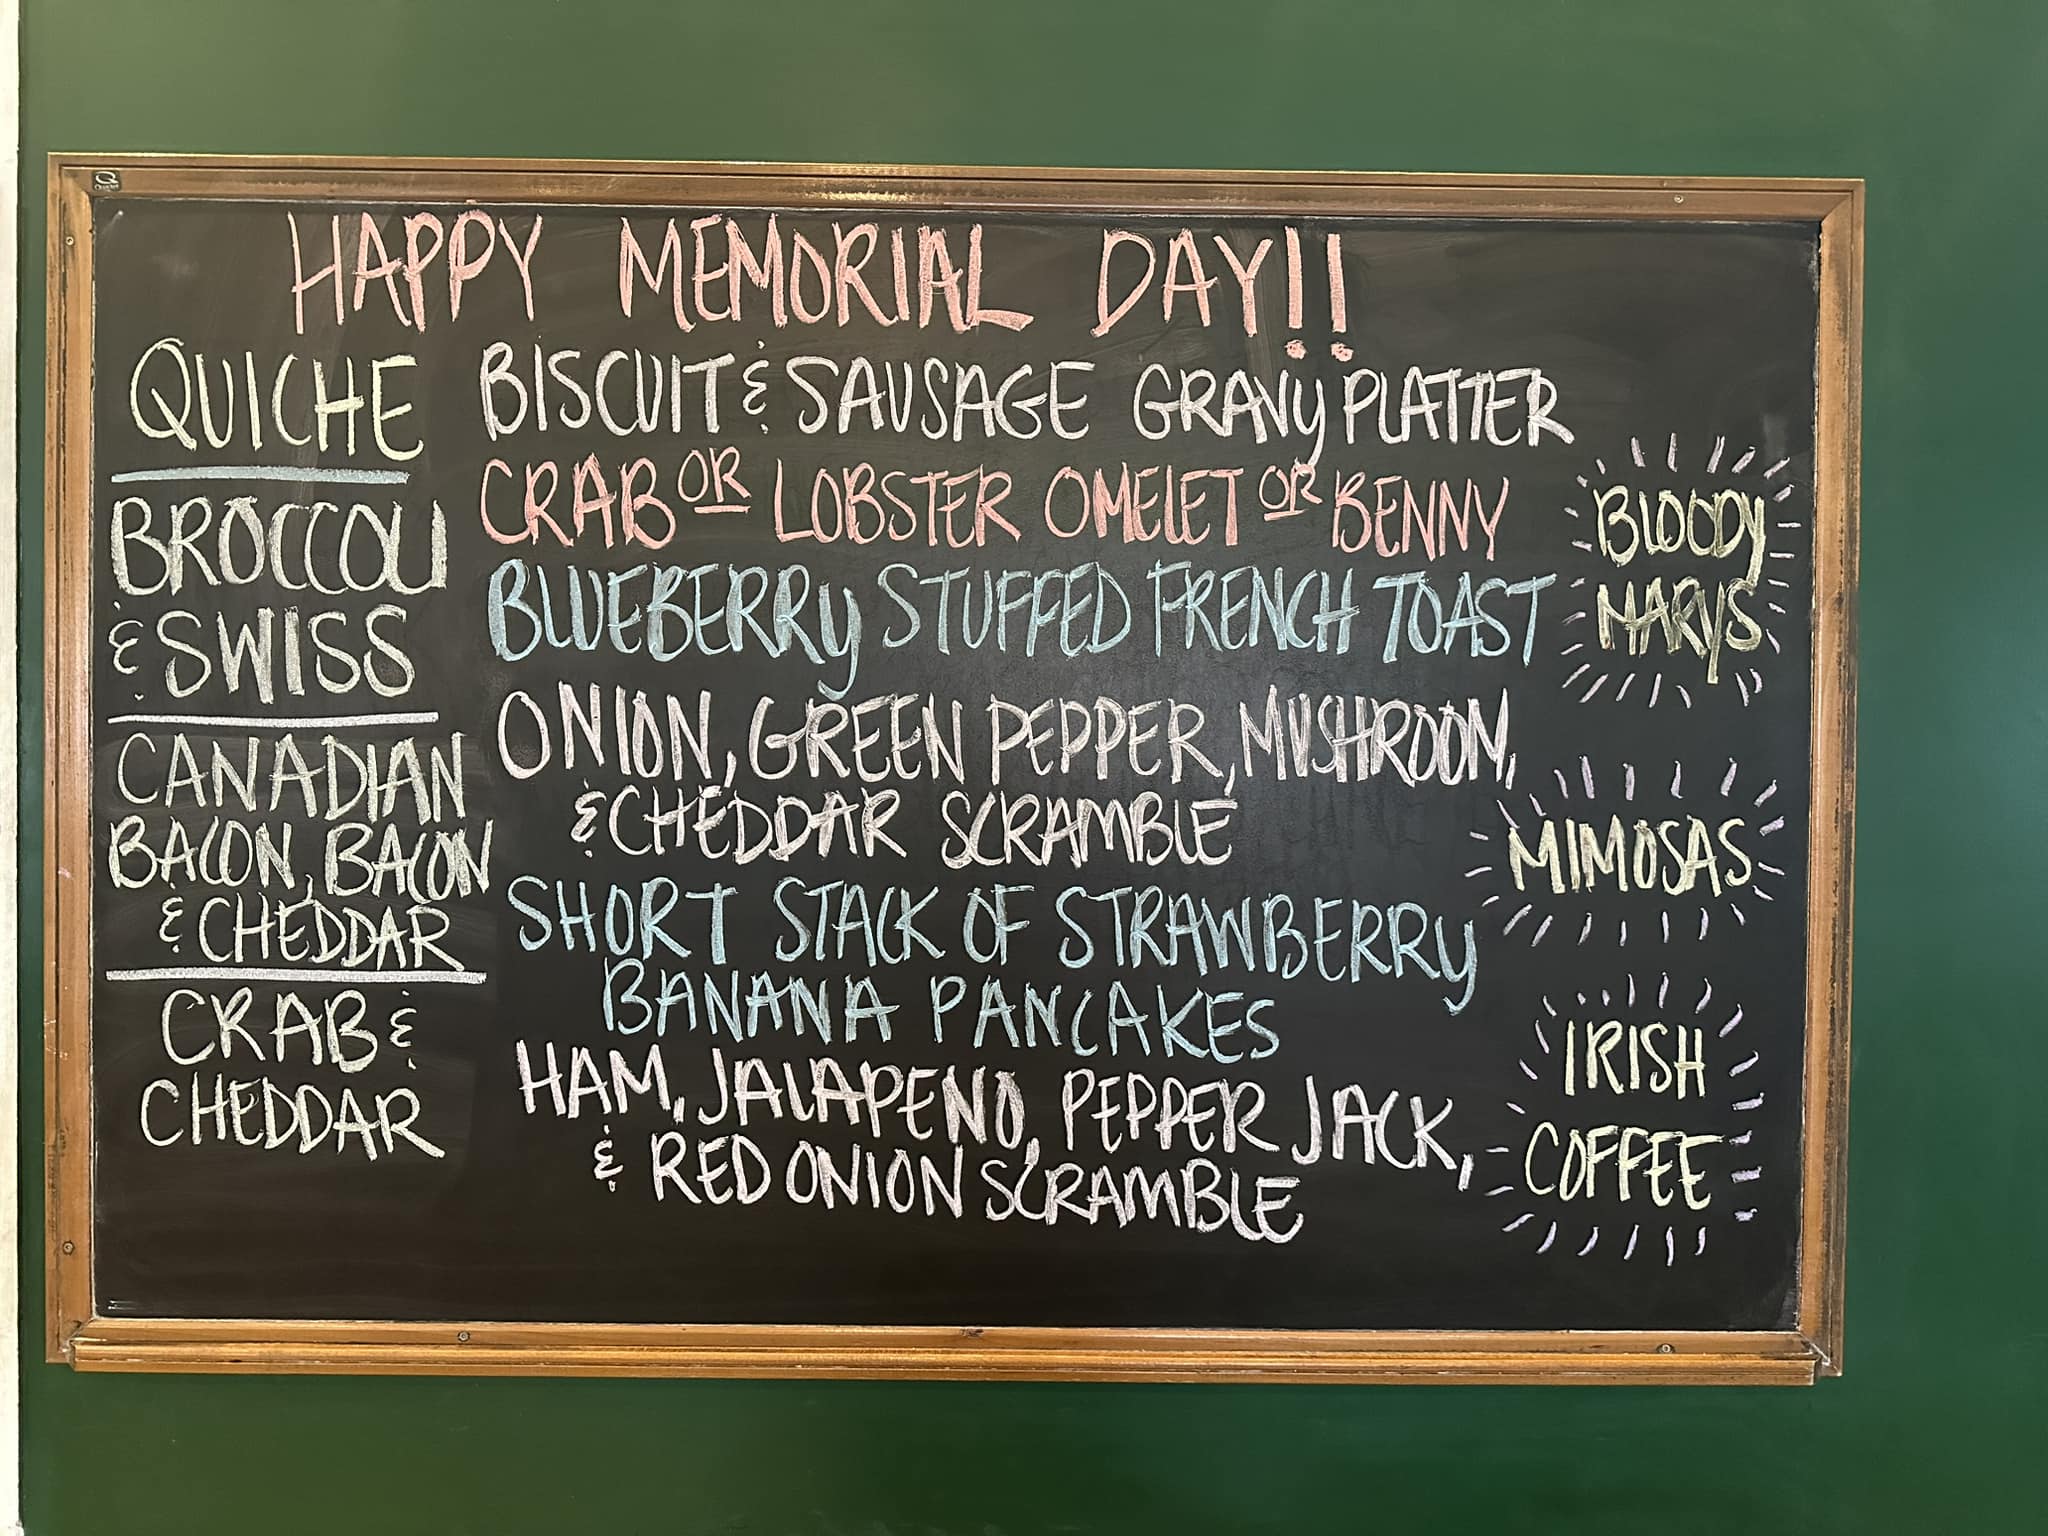 HAPPY MEMORIAL DAY!!
QUICHE
BROCCOLI
& SWISS
CANADIAN
BACON, BACON
& CHEDDAR
CRAB &
CHEDDAR
BISCUIT & SAUSAGE GRAVY PLATTER
CRAB OR LOBSTER OMELET OR BENNY
BLUEBERRY STUFFED FRENCH TOAST
ONION, GREEN PEPPER, MUSHROOM,
& CHEDDAR SCRAMBLE
SHORT STACK OF STRAWBERRY
BANANA PANCAKES
HAM, JALAPENO, PEPPER JACK,
& RED ONION SCRAMBLE
BLOODY
MARYS
MIMOSAS
IRISH
COFFEE